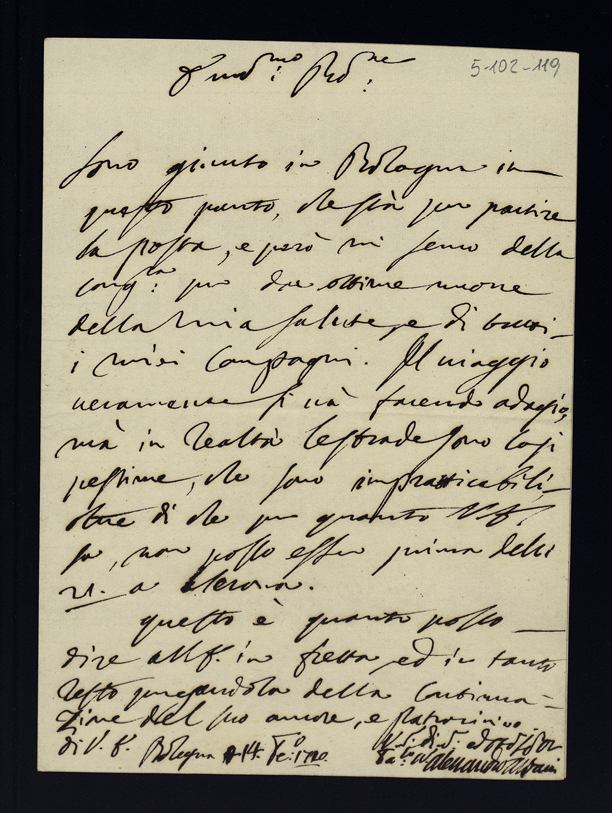 5-102-119
Sono giunto in Bologna in
questo punto, che stà per partire
la posta, e però mi servo della
cong.ra per dar ottime nuove
della mia salute, e di tutti
i miei Compagni. Il viaggio
veramente si và facendo adagio,
mà in realtà le strade sono così
pessime, che sono impratticabili,
oltre di che per quanto V.E.
sa, non posso esser prima delli
21. a Verona.
questo è quanto posso
dire all'E. in fretta, ed in tanto
resto pregandola della Continua=
zione del suo amore, e patrocinio
di V.E. Bologna 14. 1720
Alessandro Albani